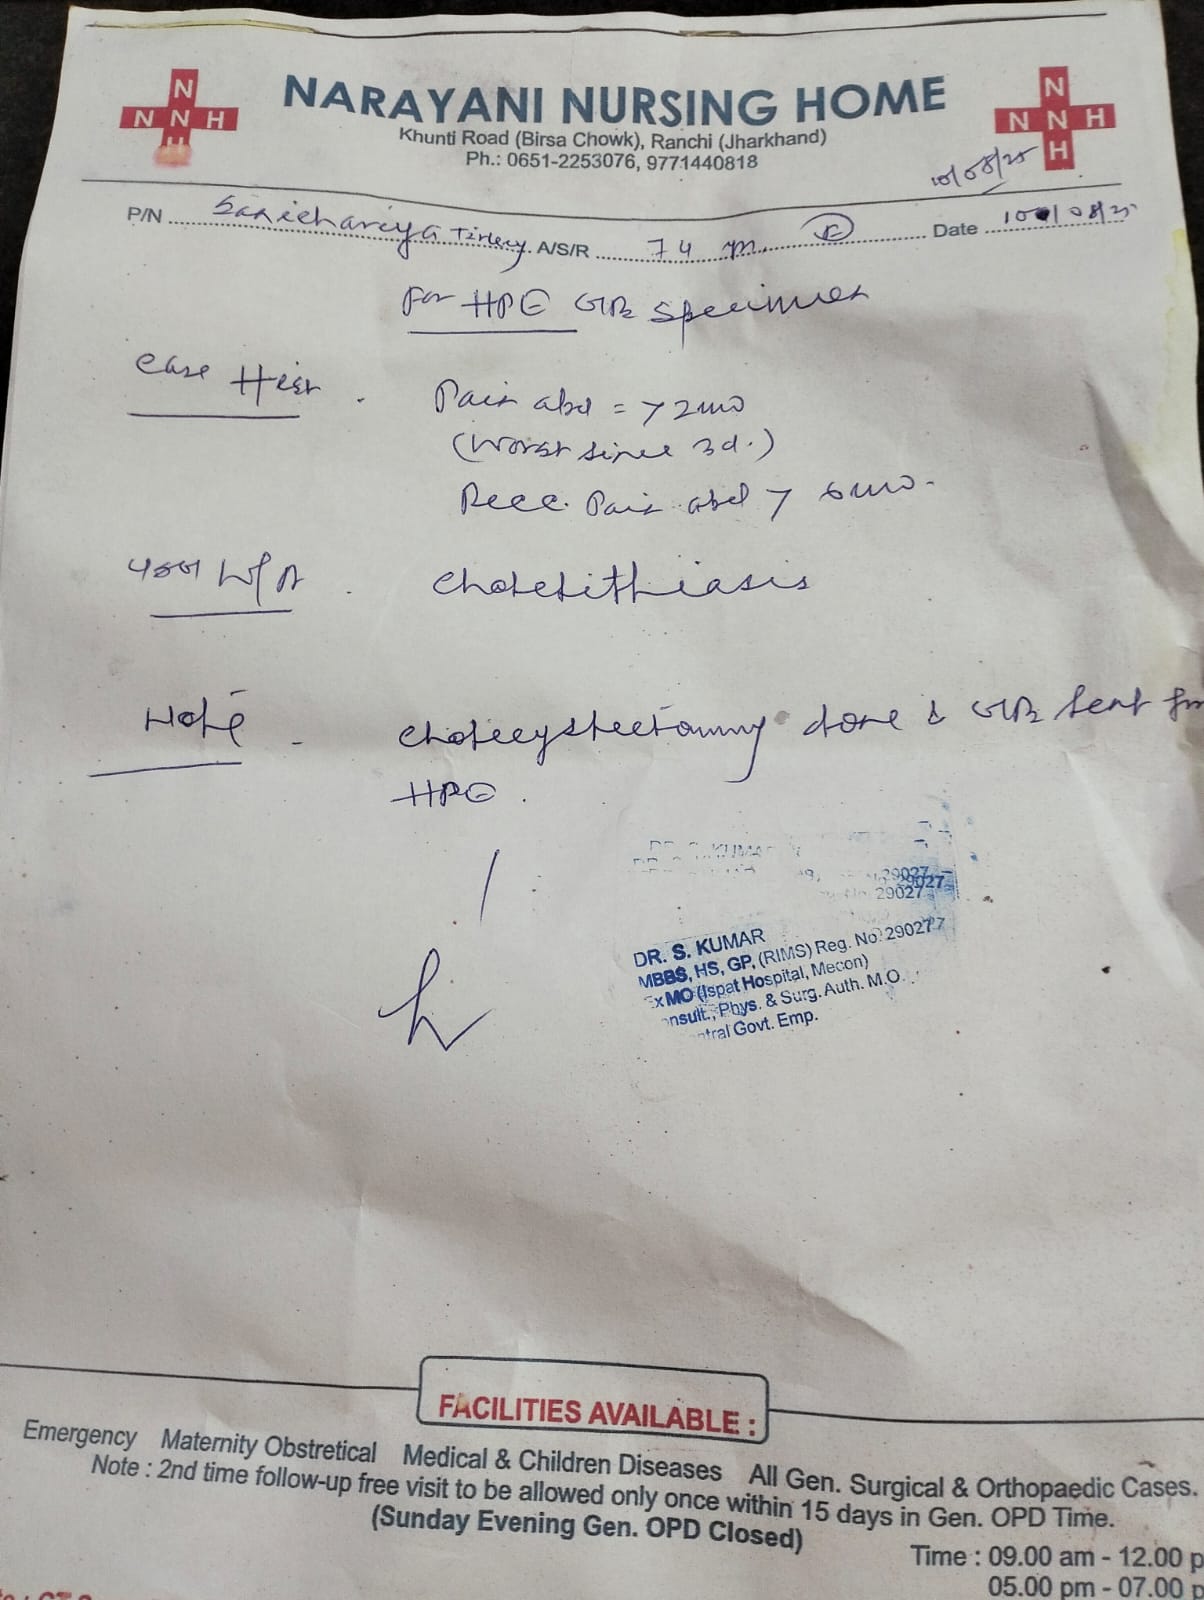 NARAYANI NURSING HOME
Khunti Road (Birsa Chowk), Ranchi (Jharkhand)
Ph.: 0651-2253076, 9771440818
N
N N H
H
N
N N H
H
10/08/25
P/N Sanichariya Tirkey A/S/R 74 m. Date 10/08/25
For HPE GB Specimen
Case Hist. Pain abd = > 2mo
(Worst since 3d.)
Recc. Pain abd > 6mo.
Cholelithiasis
Note - Cholecystectomy done & GB sent for
HPE.
29027
29027
29027
DR. S. KUMAR
MBBS, HS, GP, (RIMS) Reg. No. 29027
Ex MO (Ispat Hospital, Mecon)
onsult., Phys. & Surg. Auth. M.O.
ntral Govt. Emp.
FACILITIES AVAILABLE :
Emergency Maternity Obstretical Medical & Children Diseases All Gen. Surgical & Orthopaedic Cases.
Note : 2nd time follow-up free visit to be allowed only once within 15 days in Gen. OPD Time.
(Sunday Evening Gen. OPD Closed)
Time : 09.00 am - 12.00 p
05.00 pm - 07.00 p